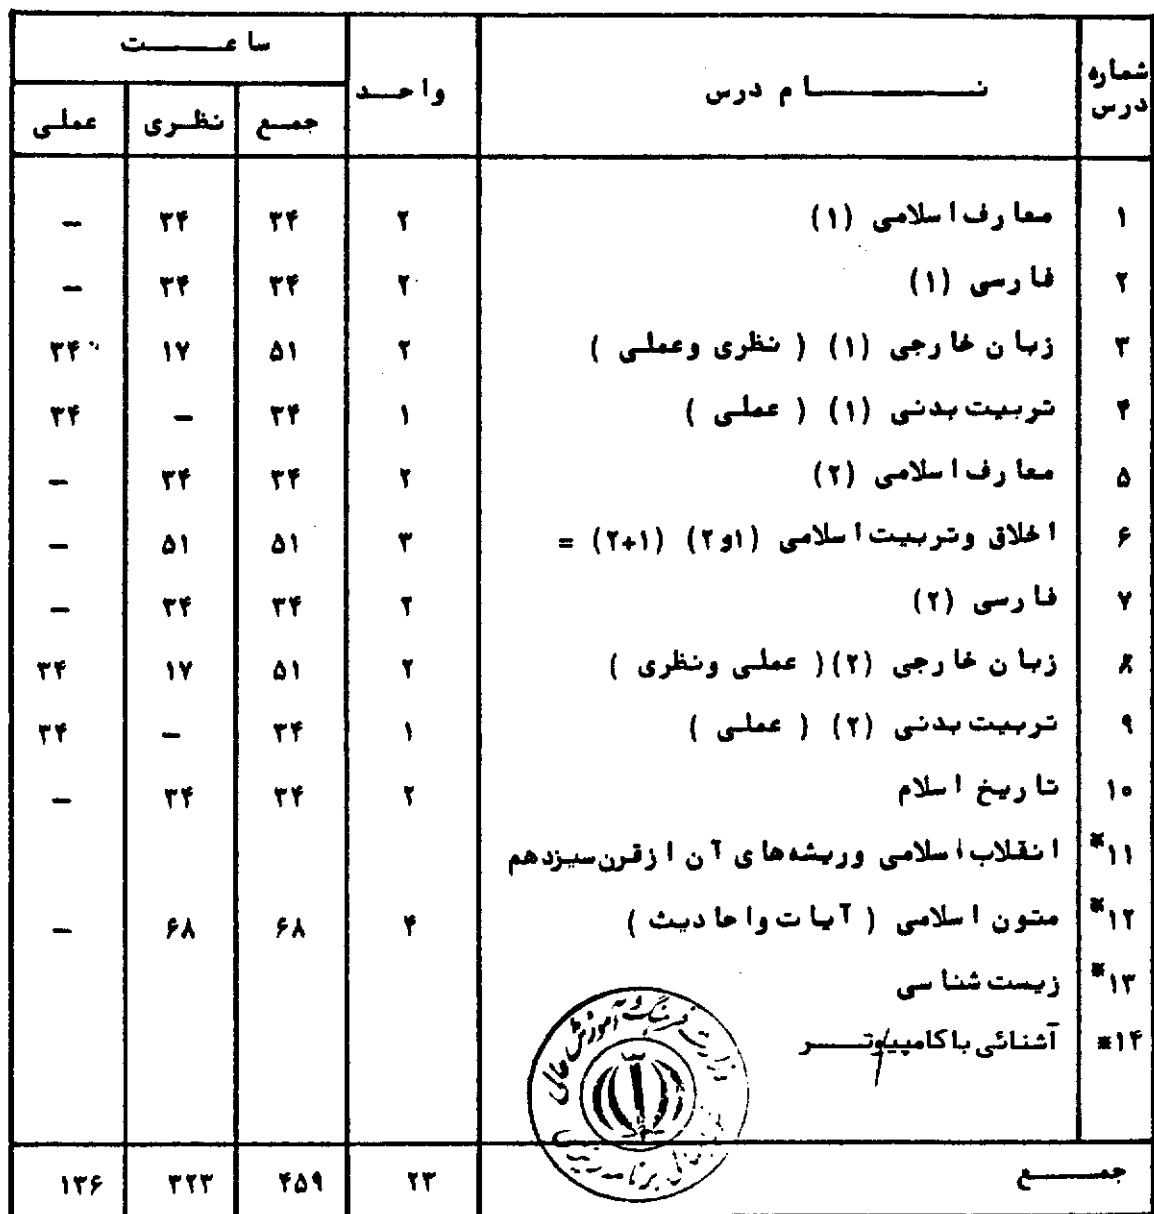 شماره درس | نـــــــــام درس | واحــد | ساعــــــت
جمـع | نظـری | عملـی
۱ | معارف اسلامی (۱) | ۲ | ۳۴ | ۳۴ | –
۲ | فارسی (۱) | ۲ | ۳۴ | ۳۴ | –
۳ | زبان خارجی (۱) ( نظری وعملـی ) | ۲ | ۵۱ | ۱۷ | ۳۴
۴ | تربیت بدنـی (۱) ( عملـی ) | ۱ | ۳۴ | – | ۳۴
۵ | معارف اسلامی (۲) | ۲ | ۳۴ | ۳۴ | –
۶ | اخلاق وتربیت اسلامی (۱و۲) (۲+۱) = | ۳ | ۵۱ | ۵۱ | –
۷ | فارسی (۲) | ۲ | ۳۴ | ۳۴ | –
۸ | زبان خارجی (۲)( عملـی ونظری ) | ۲ | ۵۱ | ۱۷ | ۳۴
۹ | تربیت بدنـی (۲) ( عملـی ) | ۱ | ۳۴ | – | ۳۴
۱۰ | تاریخ اسلام | ۲ | ۳۴ | ۳۴ | –
*۱۱ | انقلاب اسلامی وریشه‌های آن ازقرن سیزدهم
*۱۲ | متون اسلامی ( آیات واحادیث ) | ۴ | ۶۸ | ۶۸ | –
*۱۳ | زیست شناسی
*۱۴ | آشنائی با کامپیوتــــر
وزارت فرهنگ و آموزش عالی
برنامه ریزی
جمـــــع | ۲۳ | ۴۵۹ | ۳۲۳ | ۱۳۶